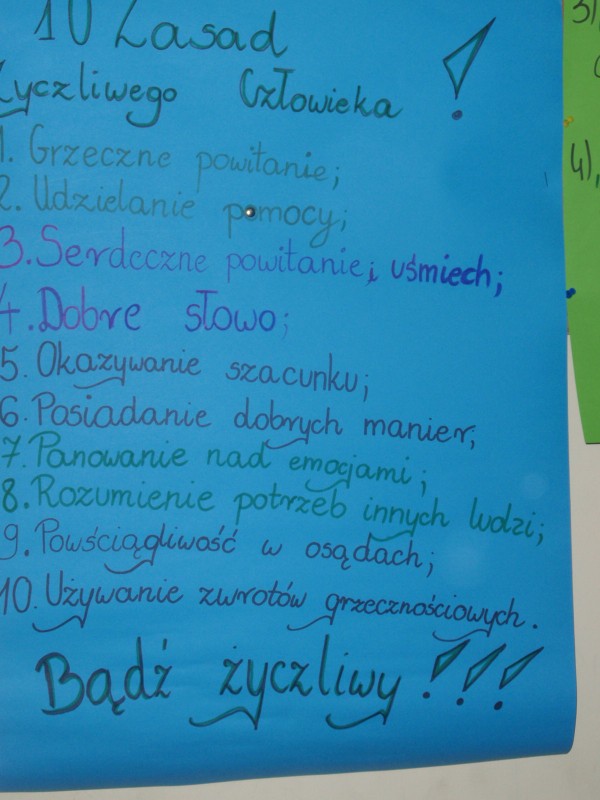 10 Zasad
Życzliwego Człowieka !
1. Grzeczne powitanie;
2. Udzielanie pomocy;
3. Serdeczne powitanie; uśmiech;
4. Dobre słowo;
5. Okazywanie szacunku;
6. Posiadanie dobrych manier;
7. Panowanie nad emocjami;
8. Rozumienie potrzeb innych ludzi;
9. Powściągliwość w osądach;
10. Używanie zwrotów grzecznościowych.
Bądź życzliwy !!!
3)
4),